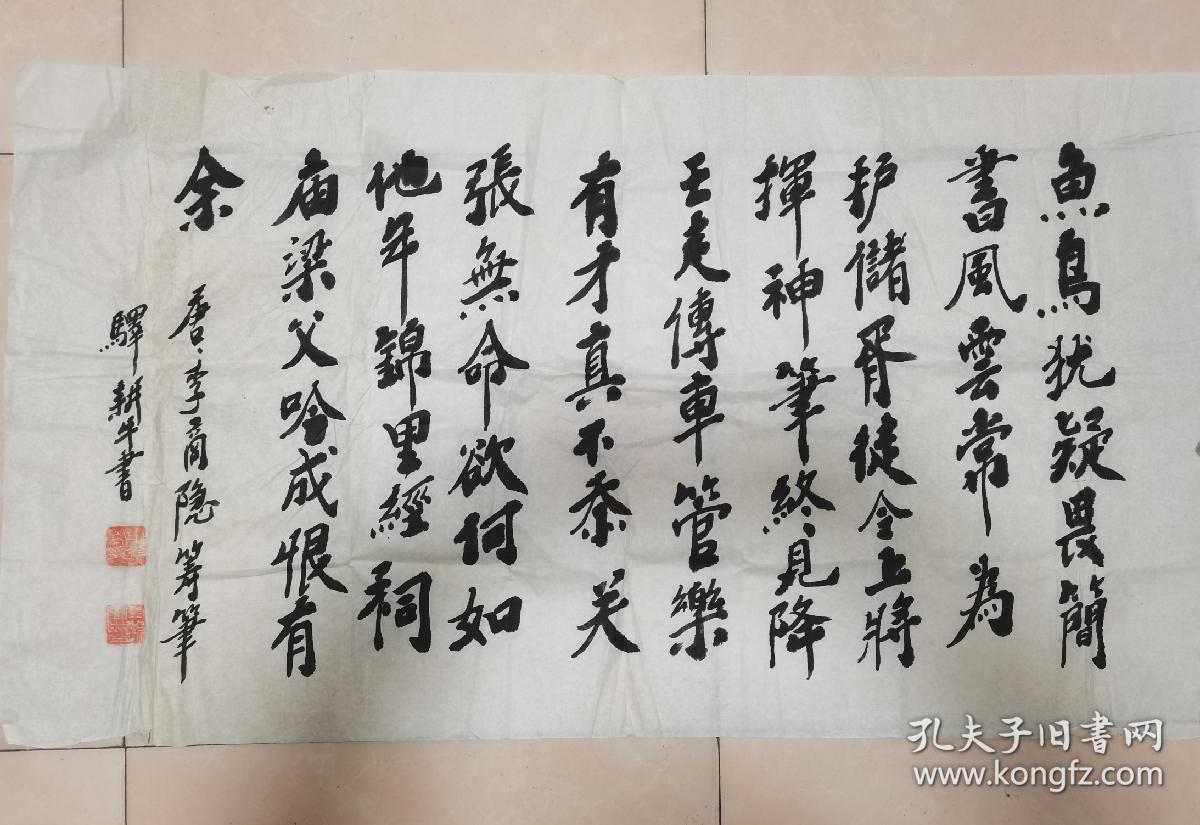 魚鳥犹疑畏簡
書風雲常為
护儲胥徒令上將
揮神筆終見降
王走傳車管樂
有才真不忝关
張無命欲何如
他年錦里經祠
庙梁父吟成恨有
余
唐、李商隐筹筆
驛耕牛書
孔夫子旧书网
www.kongfz.com